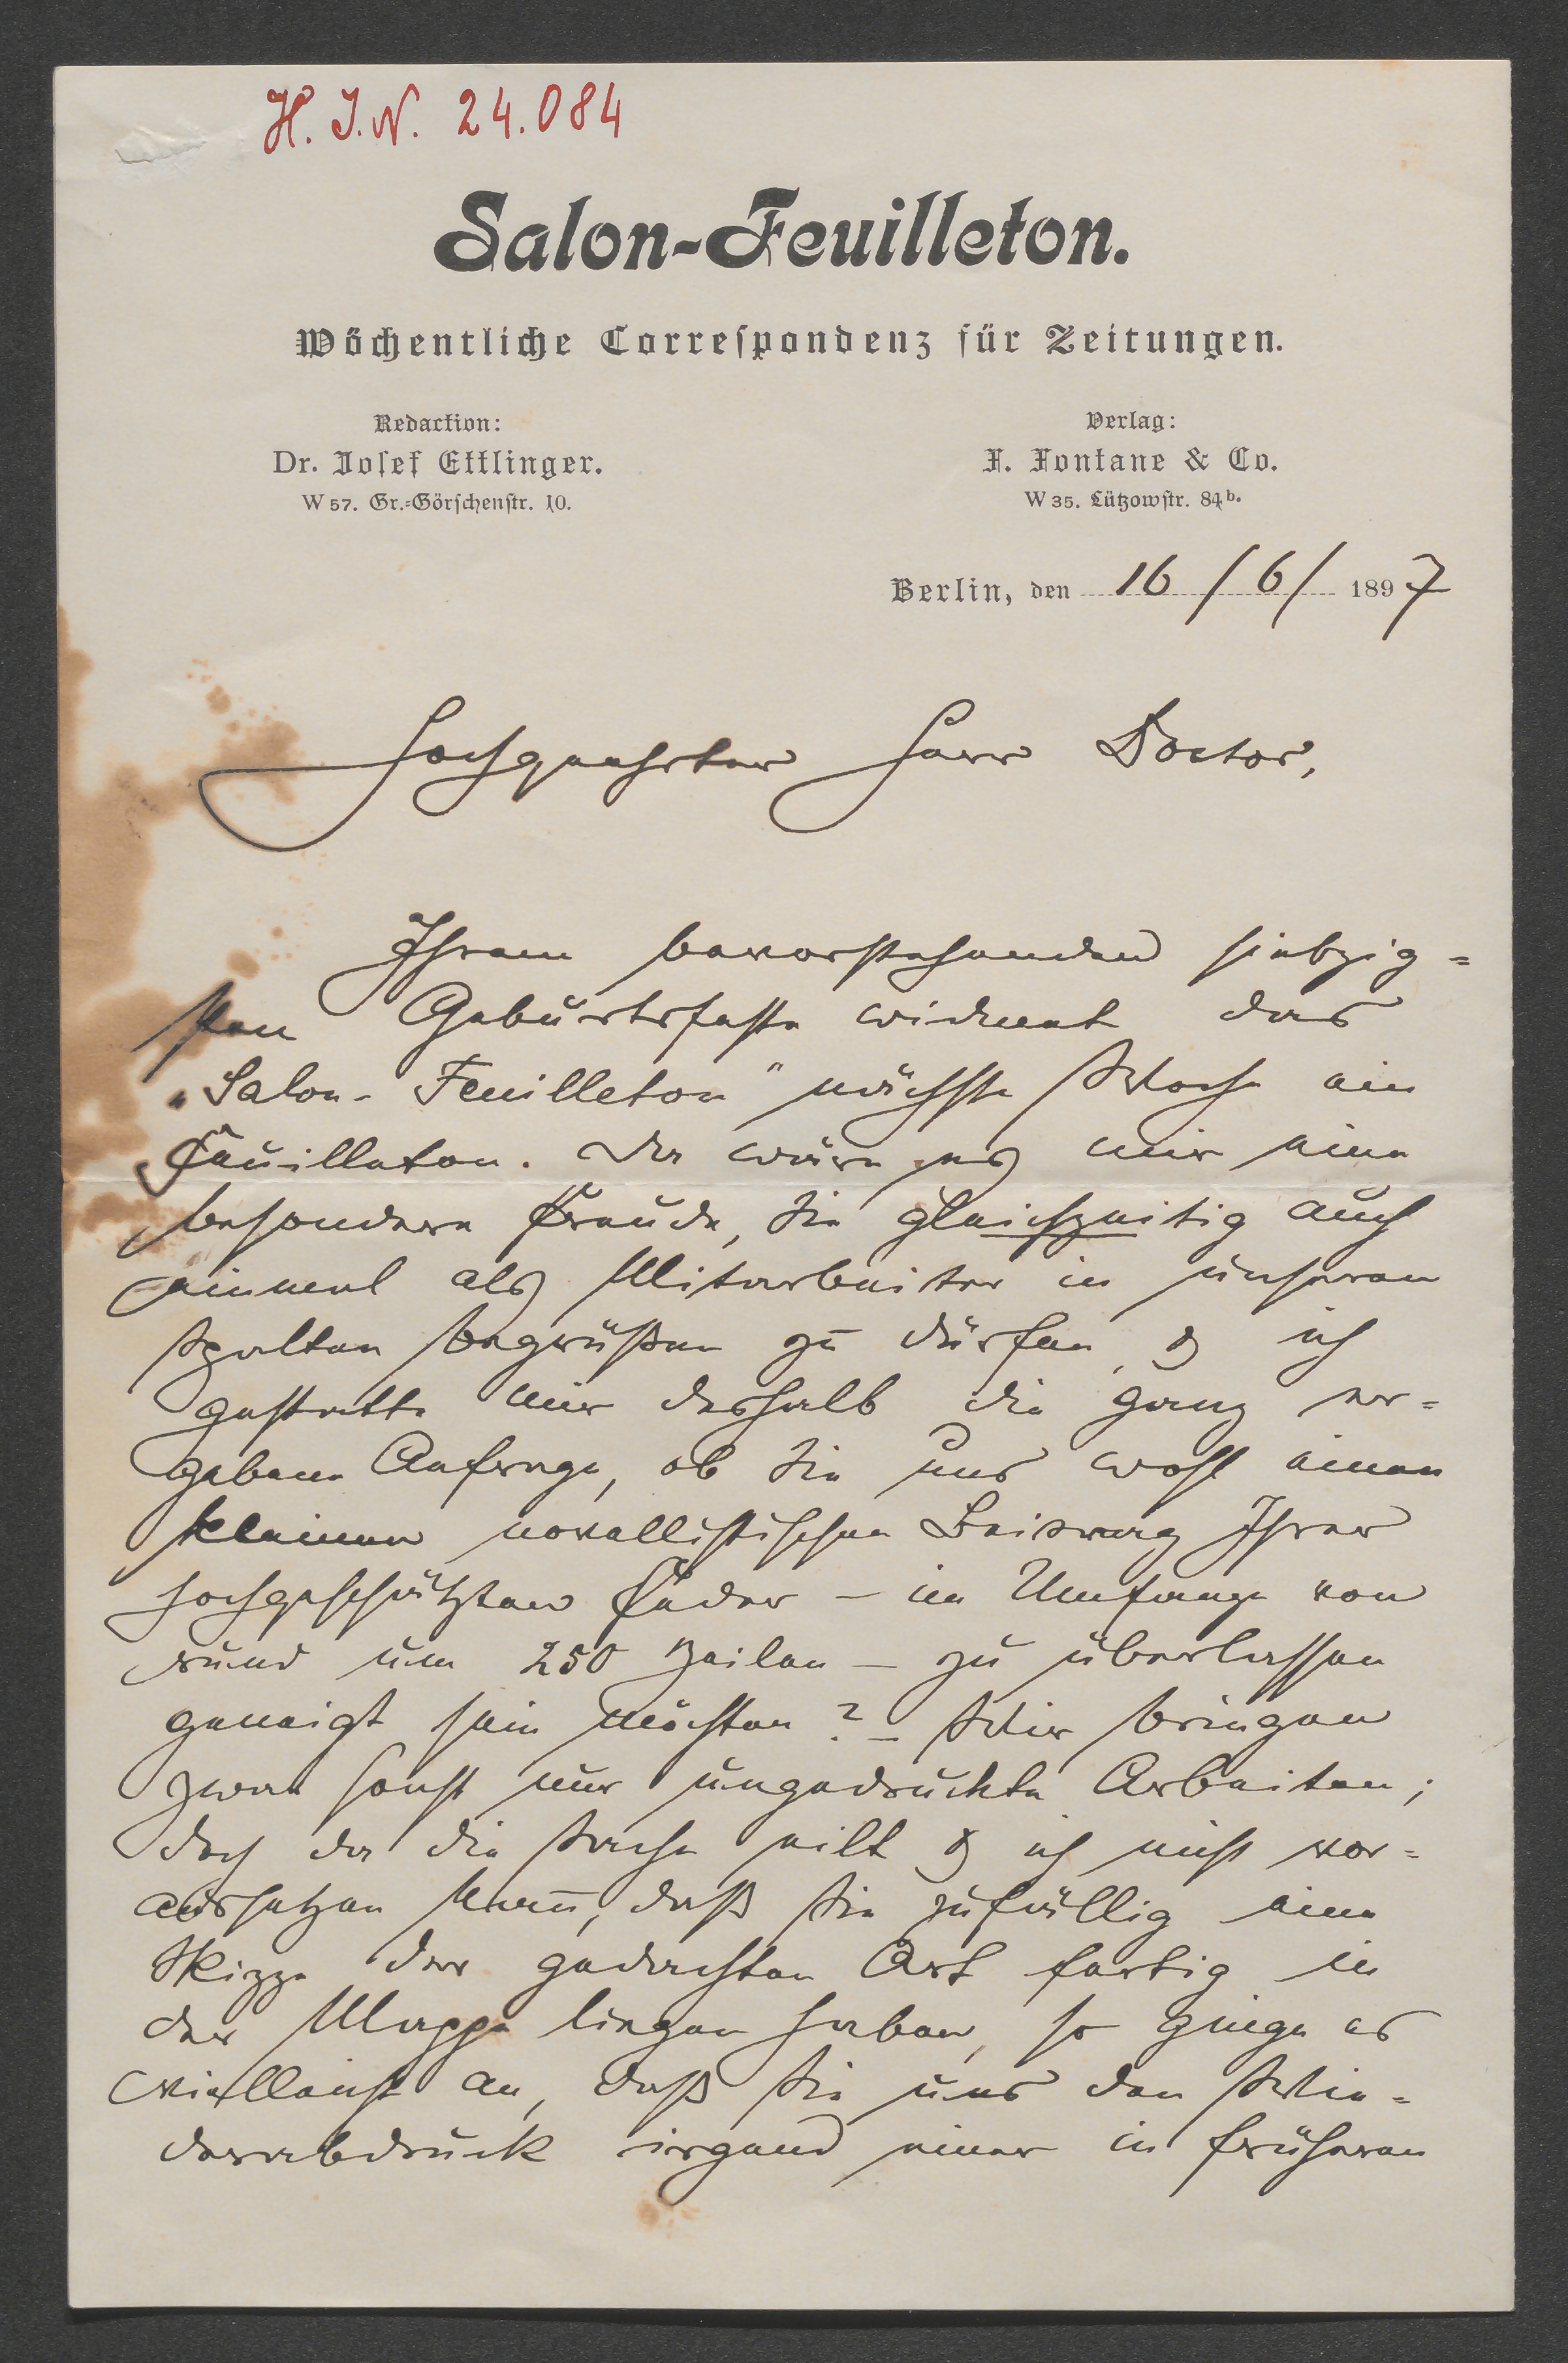 H. I. N. 24.084
Salon-Feuilleton.
Wöchentliche Correspondenz für Zeitungen.
Redaction:
Dr. Josef Ettlinger.
W 57. Gr.-Görschenstr. 10.
Verlag:
F. Fontane & Co.
W 35. Lützowstr. 84 b.
Berlin, den 16/6/ 1897
Hochgeehrter Herr Doctor,
Ihrem bevorstehenden siebzig=
sten Geburtsfeste widmet das
„Salon-Feuilleton" nächste Woche ein
Feuilleton. Da wäre es mir eine
besondere Freude, Sie gleichzeitig auch
einmal als Mitarbeiter in unseren
Spalten begrüßen zu dürfen, & ich
gestatte mir deshalb die ganz er=
gebene Anfrage, ob Sie uns wohl einen
kleinen novellistischen Beitrag Ihrer
hochgeschätzten Feder – im Umfange von
rund um 250 Zeilen – zu überlassen
geneigt sein möchten? – Wir bringen
zwar sonst nur ungedruckte Arbeiten;
doch da die Sache eilt & ich nicht vor=
aussetzen kann, daß Sie zufällig eine
Skizze der gedachten Art fertig in
der Mappe liegen haben, so ginge es
vielleicht an, daß Sie uns den Wie=
derabdruck irgend einer in früheren